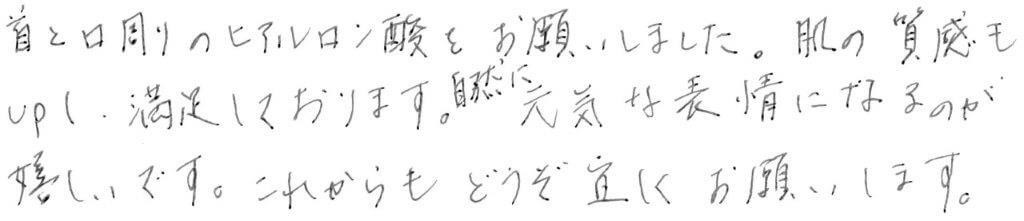 首と口周りのヒアルロン酸をお願いしました。肌の質感も
upし、満足しております。自然に元気な表情になるのが
嬉しいです。これからもどうぞ宜しくお願いします。